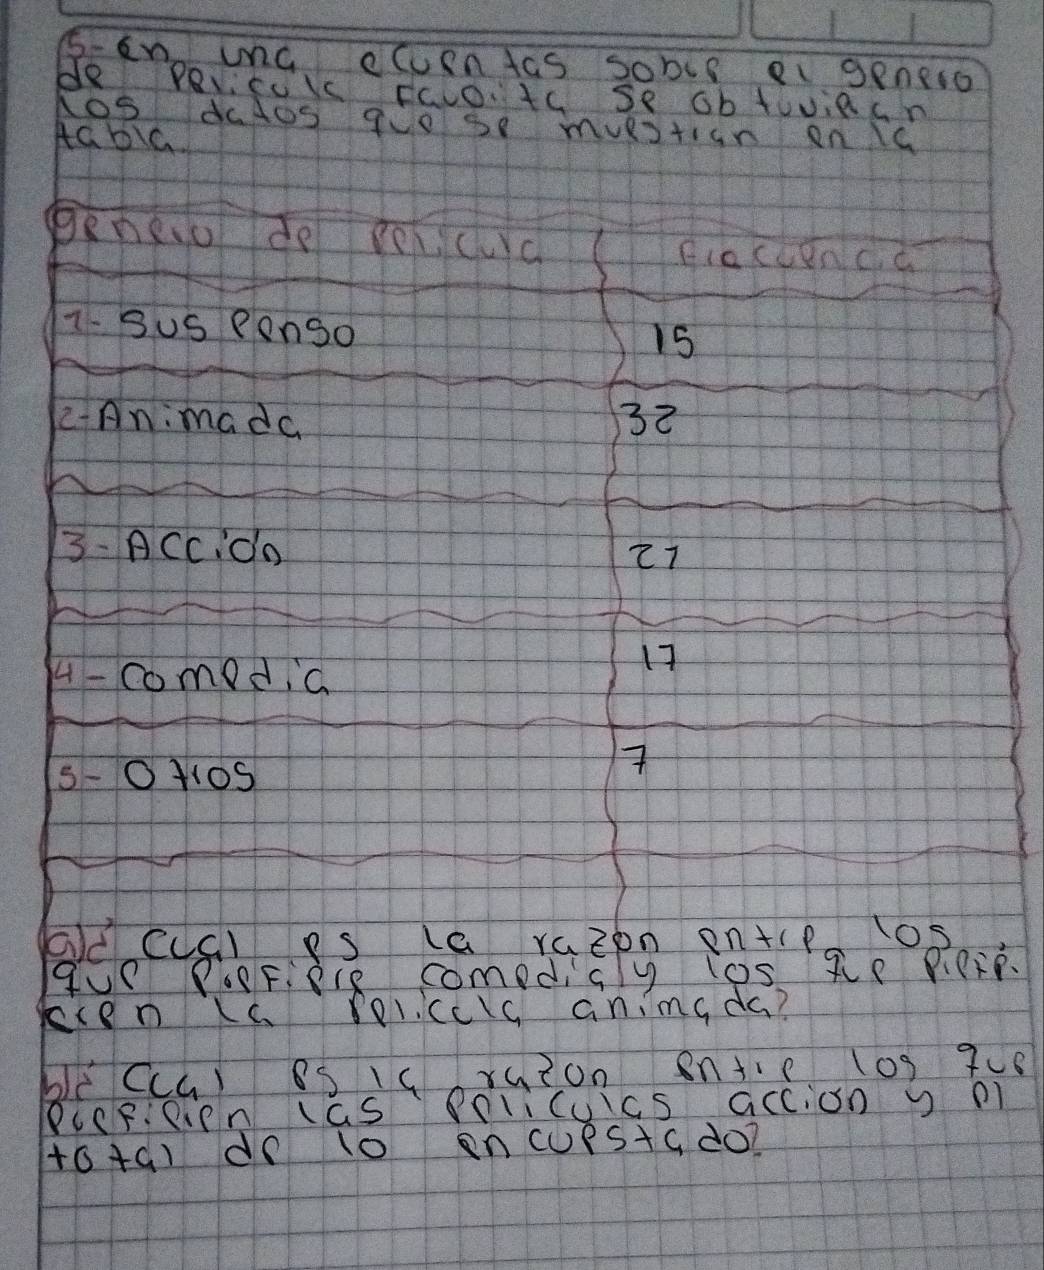 5-en una ecuentas sobre el genero
de pelicula favorita se obtuvieran
los datos que se muestran en la
tabla.
genero de pelicula frecuencia
1-Suspenso 15
2-Animada 32
3-Accion 21
4-comedia 17
5-Otros 7
a)¿cual es la razon entre los
que prefiere comedia y los que prefie.
cren la pelicula animada?
b)¿cual es la razon entre los que
prefieren las peliculas accion y el
total de lo encuestado?